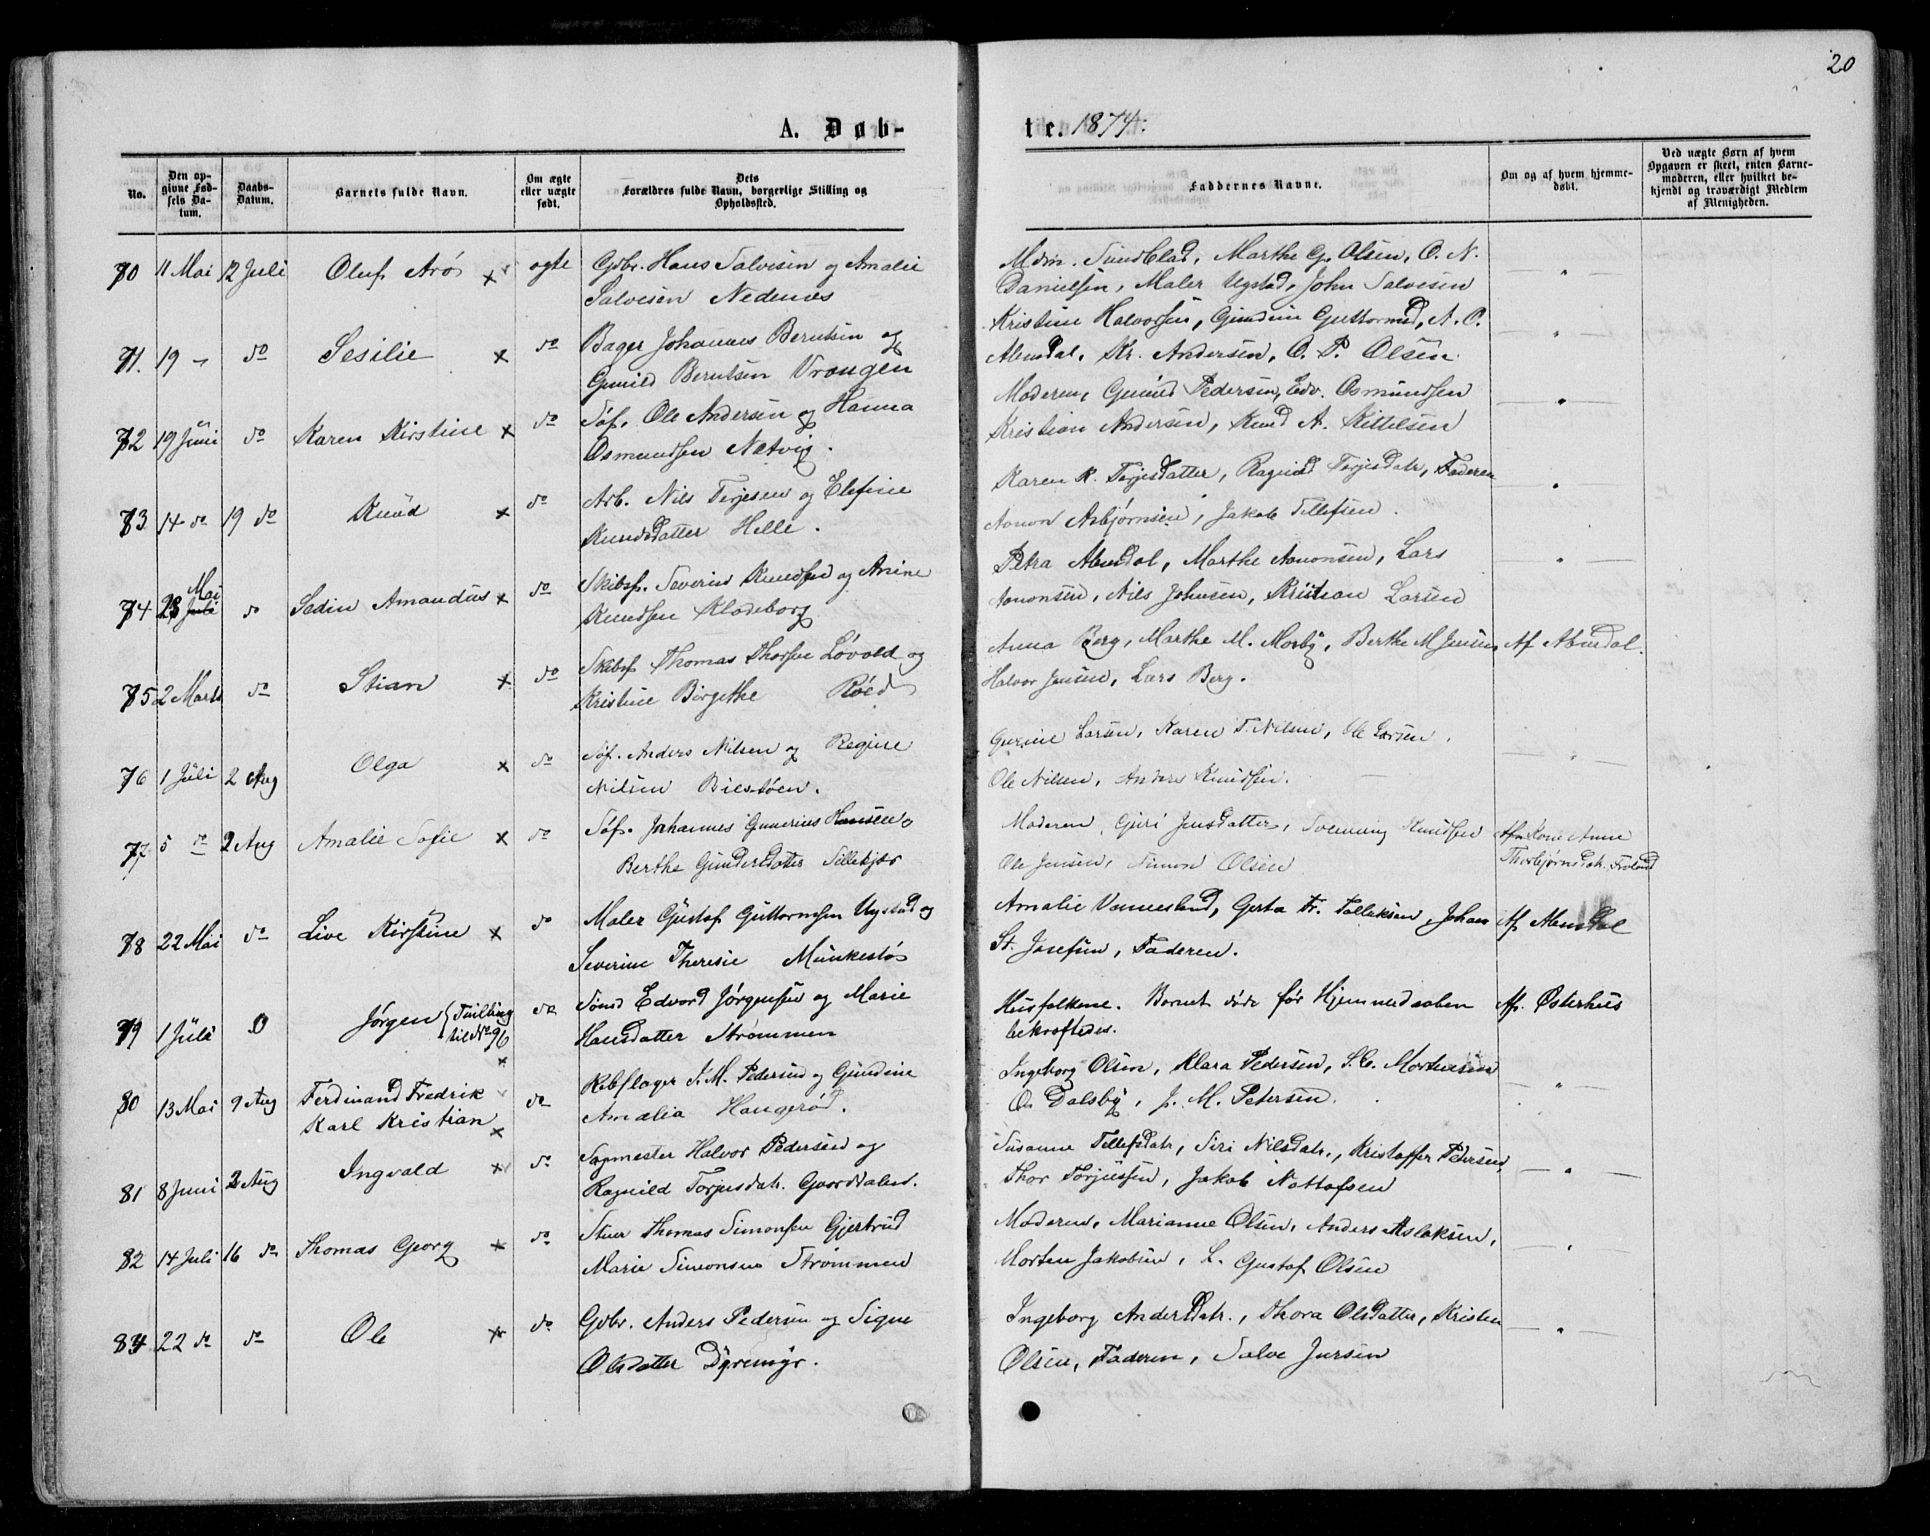 20
A. Døb-
te. 1874.
No.
Den opgivne Fødsels Datum.
Daabs-Datum.
Barnets fulde Navn.
Om ægte eller uægte født.
Dets Forældres fulde Navn, borgerlige Stilling og Opholdssted.
Faddernes Navne.
Om og af hvem hjemmedøbt.
Ved uægte Børn af hvem Opgaven er skeet, enten Barnemoderen, eller hvilket bekjendt og troværdigt Medlem af Menigheden.
70 11 Mai 12 Juli Oluf Arø x ægte Gdbr. Hans Salvesen og Amalie
Salvesen Nedenes
Mdm. Sundblad, Marthe G. Olsen, O. N.
Danielsen, Maler Ugstad, John Salvesen
71. 19 - do Sesilie x do Bager Johannes Berntsen og
Gunild Berntsen Vrangen
Kristine Halvorsen, Gundine Guttormsd, A. P.
Almedal, Kr. Andersen, O. P. Olsen.
72 19 Juni do Karen Kirstine x do Søf. Ole Andersen og Hanna
Osmundsen Natvig.
Moderen, Gunild Pedersen, Edv. Osmundsen
Kristian Andersen, Knud A. Kittelsen
73 14 do 19 do Knud x do Arb. Nils Terjesen og Elefine
Knudsdatter Helle.
Karen K. Terjesdatter, Ragnild Terjesdatr, Faderen
Aanon Asbjørnsen, Jakob Tellefsen.
74 28 Mai do Sedin Amandus x do Skibsf. Severin Knudsen og Anine
Knudsen Klodeborg
Petra Almedal, Marthe Aanonsen, Lars
Aanonsen, Nils Johnsen, Kristian Larsen
75 2 Marts do Stian x do Skibsf. Thomas Thorsen Løvold og
Kristine Birgethe Røed
Anna Berg, Marthe M. Morby, Berthe M Jensen Af Almedal.
Halvor Jensen, Lars Berg.
76 1 Juli 2 Aug Olga x do Søf. Anders Nilsen og Regine
Nilsen Bilstøen.
Gurine Larsen, Karen T. Nilsen, Ole Larsen,
Ole Nilsen, Anders Knudsen.
77. 5 do 2 Aug Amalie Sofie x do Søf. Johannes Gunerius Hansen o
Berthe Gundersdatter Sillekjær
Moderen, Guri Jensdatter, Svenning Knudsen Af Kone Anne
Ole Jensen, Simon Olsen Thorbjørnsdatr. Froland
78 22 Mai do Live Kirstine x do Maler Gustaf Guttormsen Ugstad og
Severine Theresie Munkestø
Amalie Vanneslund, Gerta Fr. Tellefsen, Johan Af Almedal
St. Josefsen, Faderen.
79 1 Juli 0 Jørgen {Tvilling til No 96 x do Sømd Edvard Jørgensen og Marie
Hansdatter Strømmen
Husfolkene. Barnet døde før Hjemmedaaben Af. Østerhus
bekræftedes.
80 13 Mai 9 Aug Ferdinand Fredrik
Karl Kristian x do Rebslager N. M. Pedersen og Gundine
Amalia Haugerød.
Ingeborg Olsen, Klara Pedersen, S. C. Mortensen
O. Dalsby, J. M. Petersen.
81 8 Juni 2 Aug Ingvald x do Sagmester Halvor Pedersen og
Ragnild Torjusdatr. Gaardsalen.
Susanne Tellefsdatr, Siri Nilsdatr., Kristoffer Pedersen
Thor Torjussen, Jakob Nottofsen
82 14 Juli 16 do Thomas Georg x do Stuer Thomas Simonsen Gjertrud
Marie Simonsen Strømmen
Moderen, Marianne Olsen, Anders Aslaksen,
Morten Jakobsen, L. Gustaf Olsen
83 22 do do Ole x do Gdbr. Anders Pedersen og Signe
Olsdatter Dyremyr.
Ingeborg Andersdatr., Thora Olsdatter, Kristen
Olsen, Faderen, Salve Jensen